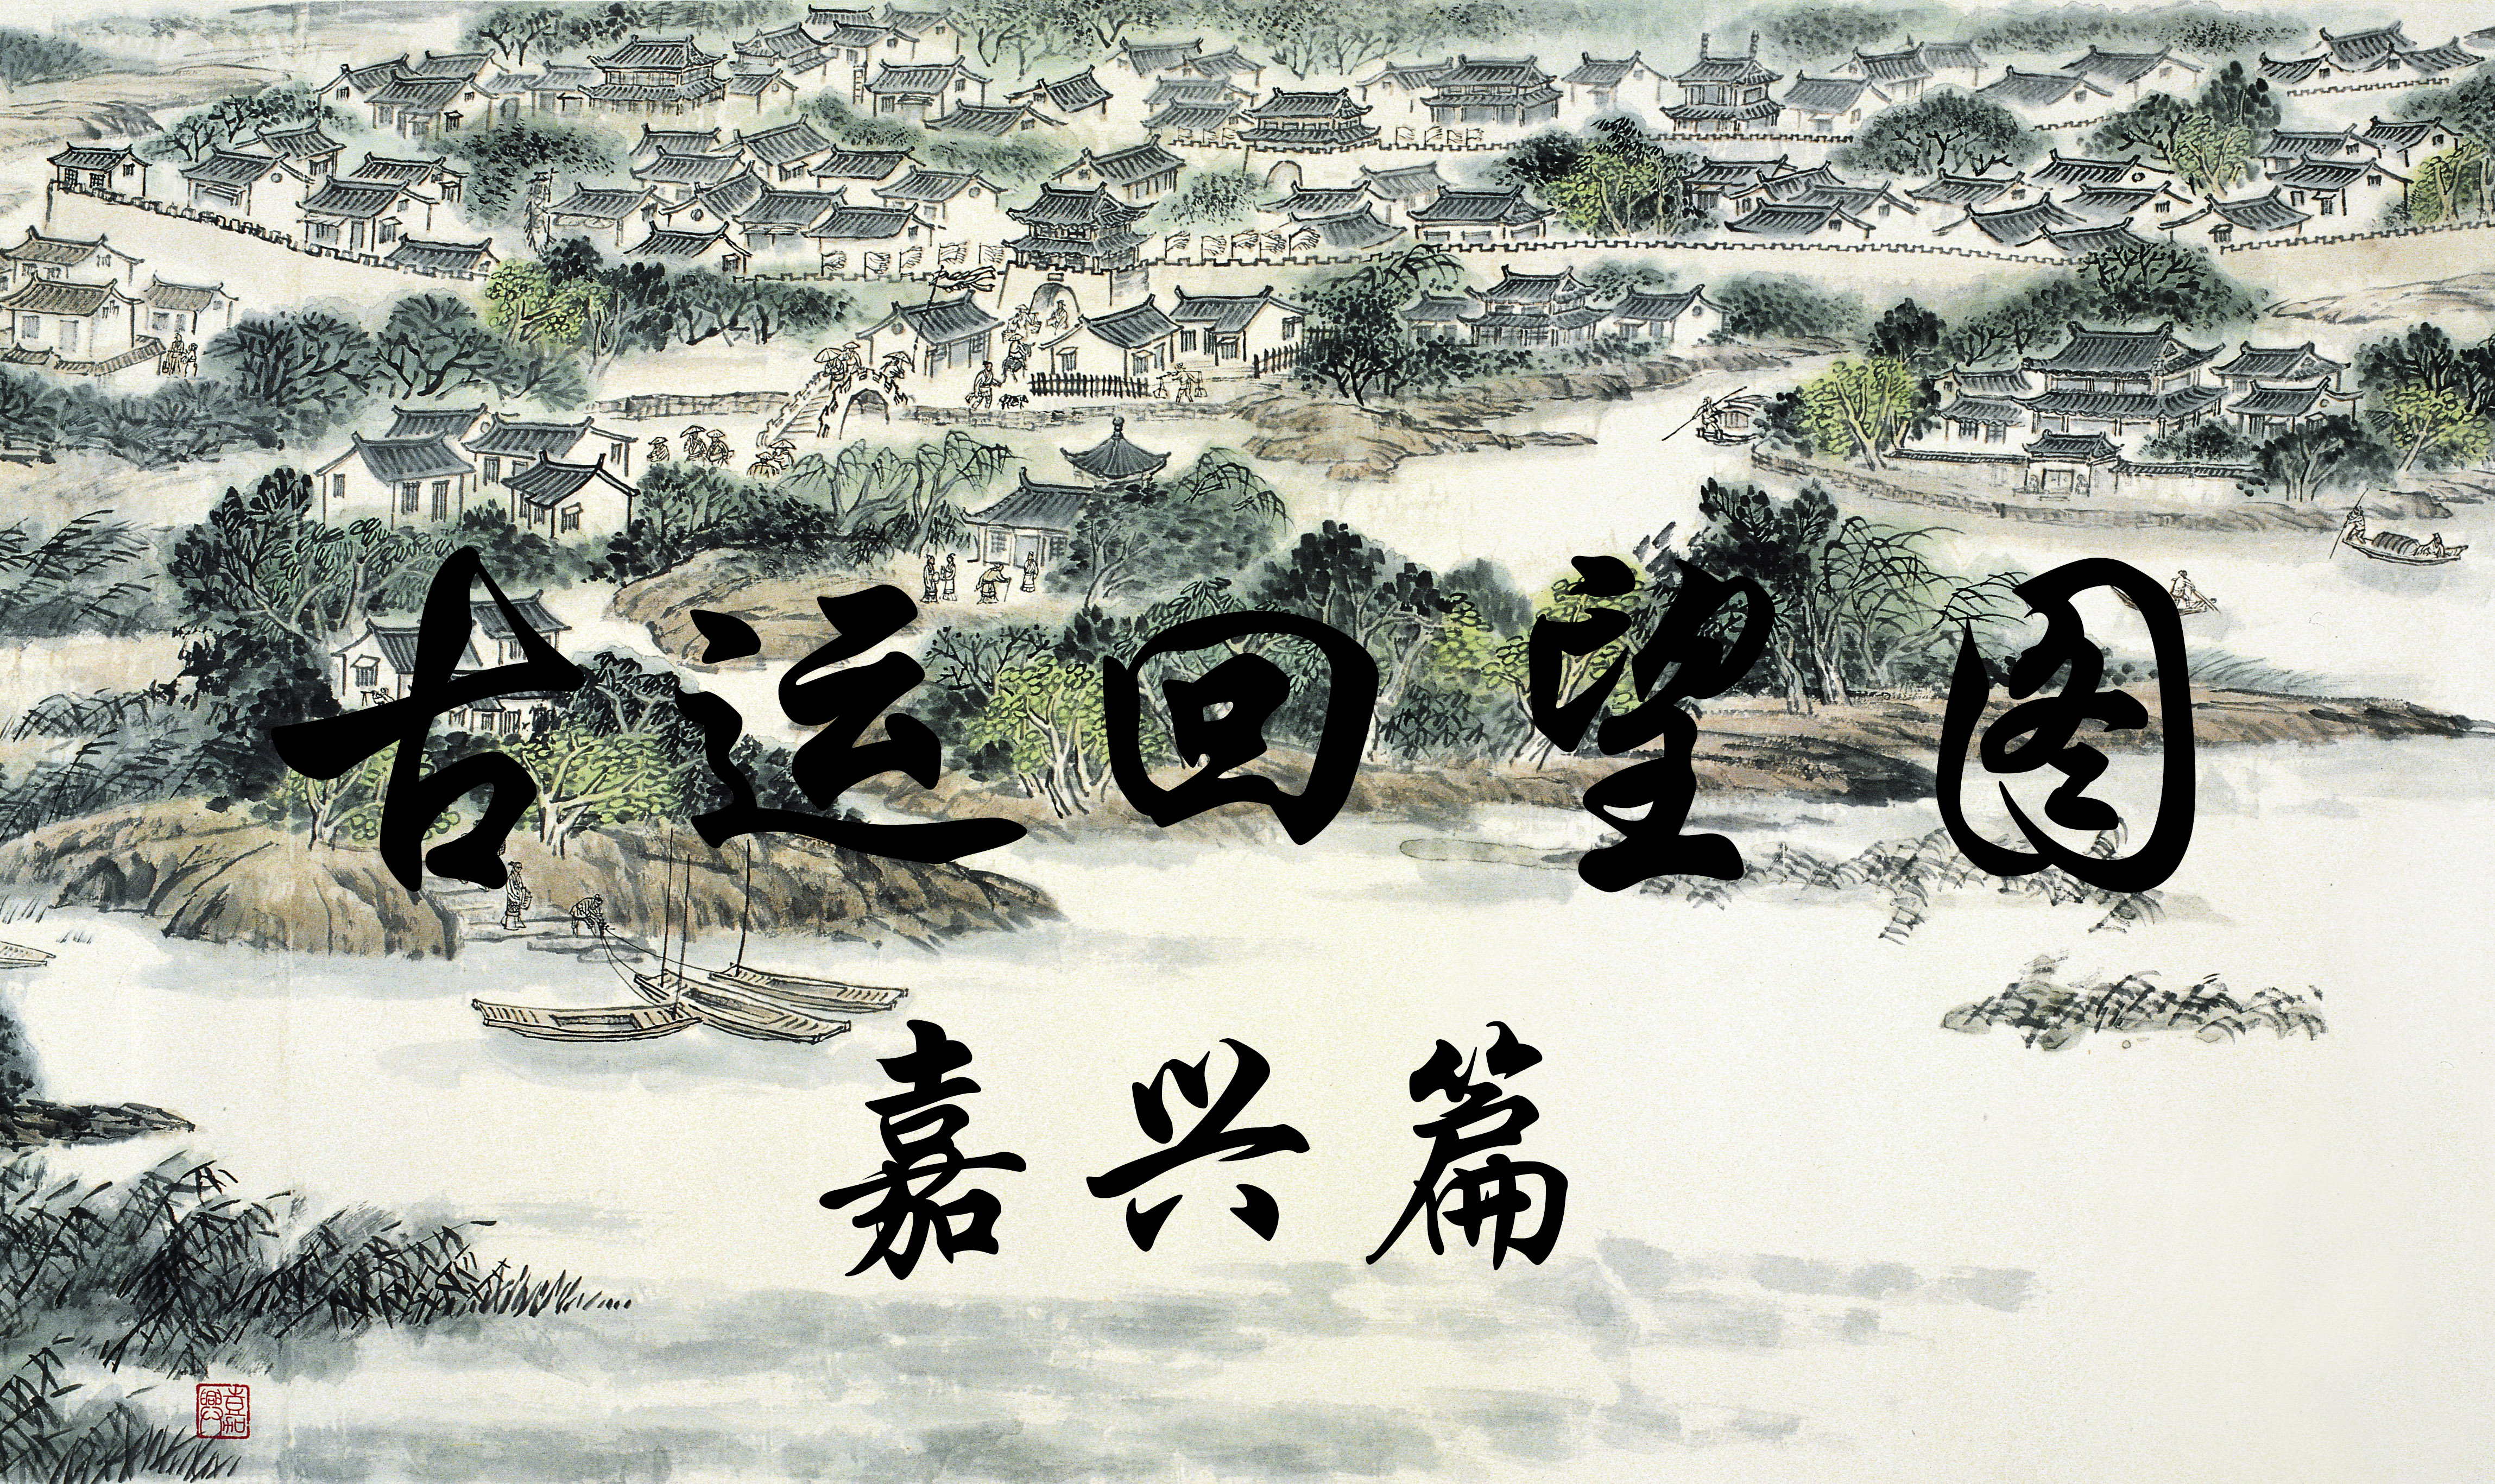 古运回望图
嘉兴篇
嘉興